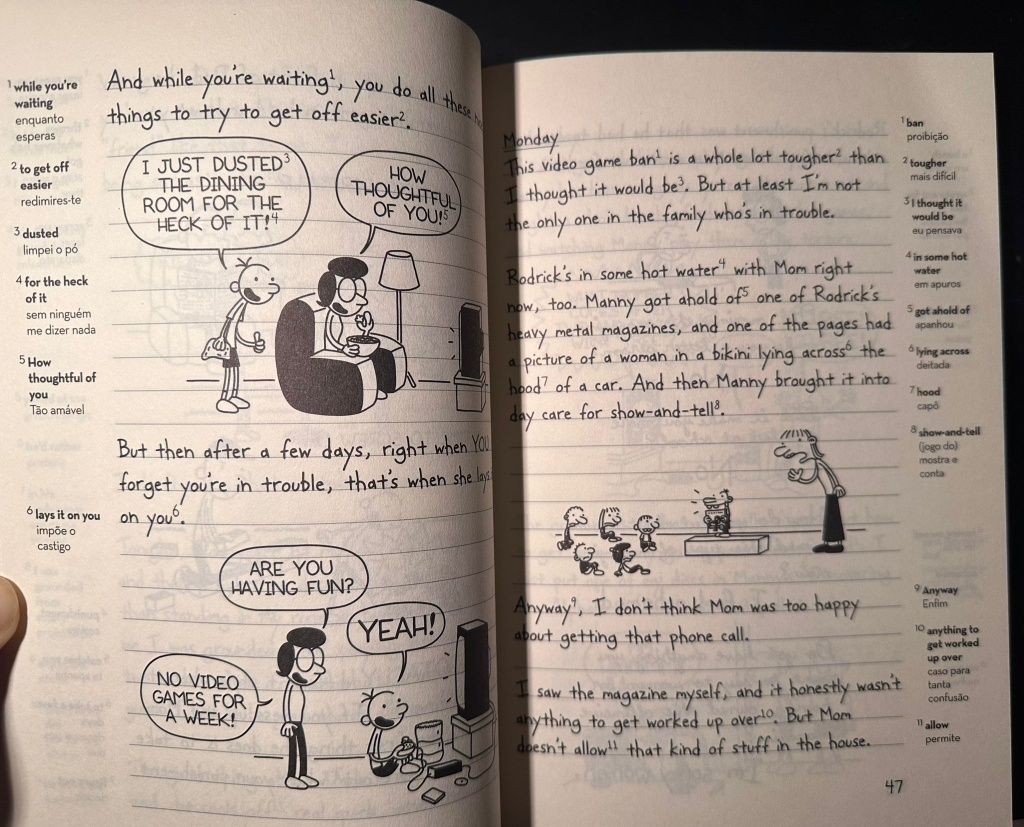 ¹ while you're
waiting
enquanto
esperas
² to get off
easier
redimires-te
³ dusted
limpei o pó
⁴ for the heck
of it
sem ninguém
me dizer nada
⁵ How
thoughtful of
you
Tão amável
⁶ lays it on you
impõe o
castigo
And while you're waiting¹, you do all these
things to try to get off easier².
I JUST DUSTED³
THE DINING
ROOM FOR THE
HECK OF IT!⁴
HOW
THOUGHTFUL
OF YOU!⁵
But then after a few days, right when YOU
forget you're in trouble, that's when she lays
on you⁶.
ARE YOU
HAVING FUN?
YEAH!
NO VIDEO
GAMES FOR
A WEEK!
Monday
This video game ban¹ is a whole lot tougher² than
I thought it would be³. But at least I'm not
the only one in the family who's in trouble.
Rodrick's in some hot water⁴ with Mom right
now, too. Manny got ahold of⁵ one of Rodrick's
heavy metal magazines, and one of the pages had
a picture of a woman in a bikini lying across⁶ the
hood⁷ of a car. And then Manny brought it into
day care for show-and-tell⁸.
Anyway⁹, I don't think Mom was too happy
about getting that phone call.
I saw the magazine myself, and it honestly wasn't
anything to get worked up over¹⁰. But Mom
doesn't allow¹¹ that kind of stuff in the house.
¹ ban
proibição
² tougher
mais difícil
³ I thought it
would be
eu pensava
⁴ in some hot
water
em apuros
⁵ got ahold of
apanhou
⁶ lying across
deitada
⁷ hood
capô
⁸ show-and-tell
(jogo do)
mostra e
conta
⁹ Anyway
Enfim
¹⁰ anything to
get worked
up over
caso para
tanta
confusão
¹¹ allow
permite
47